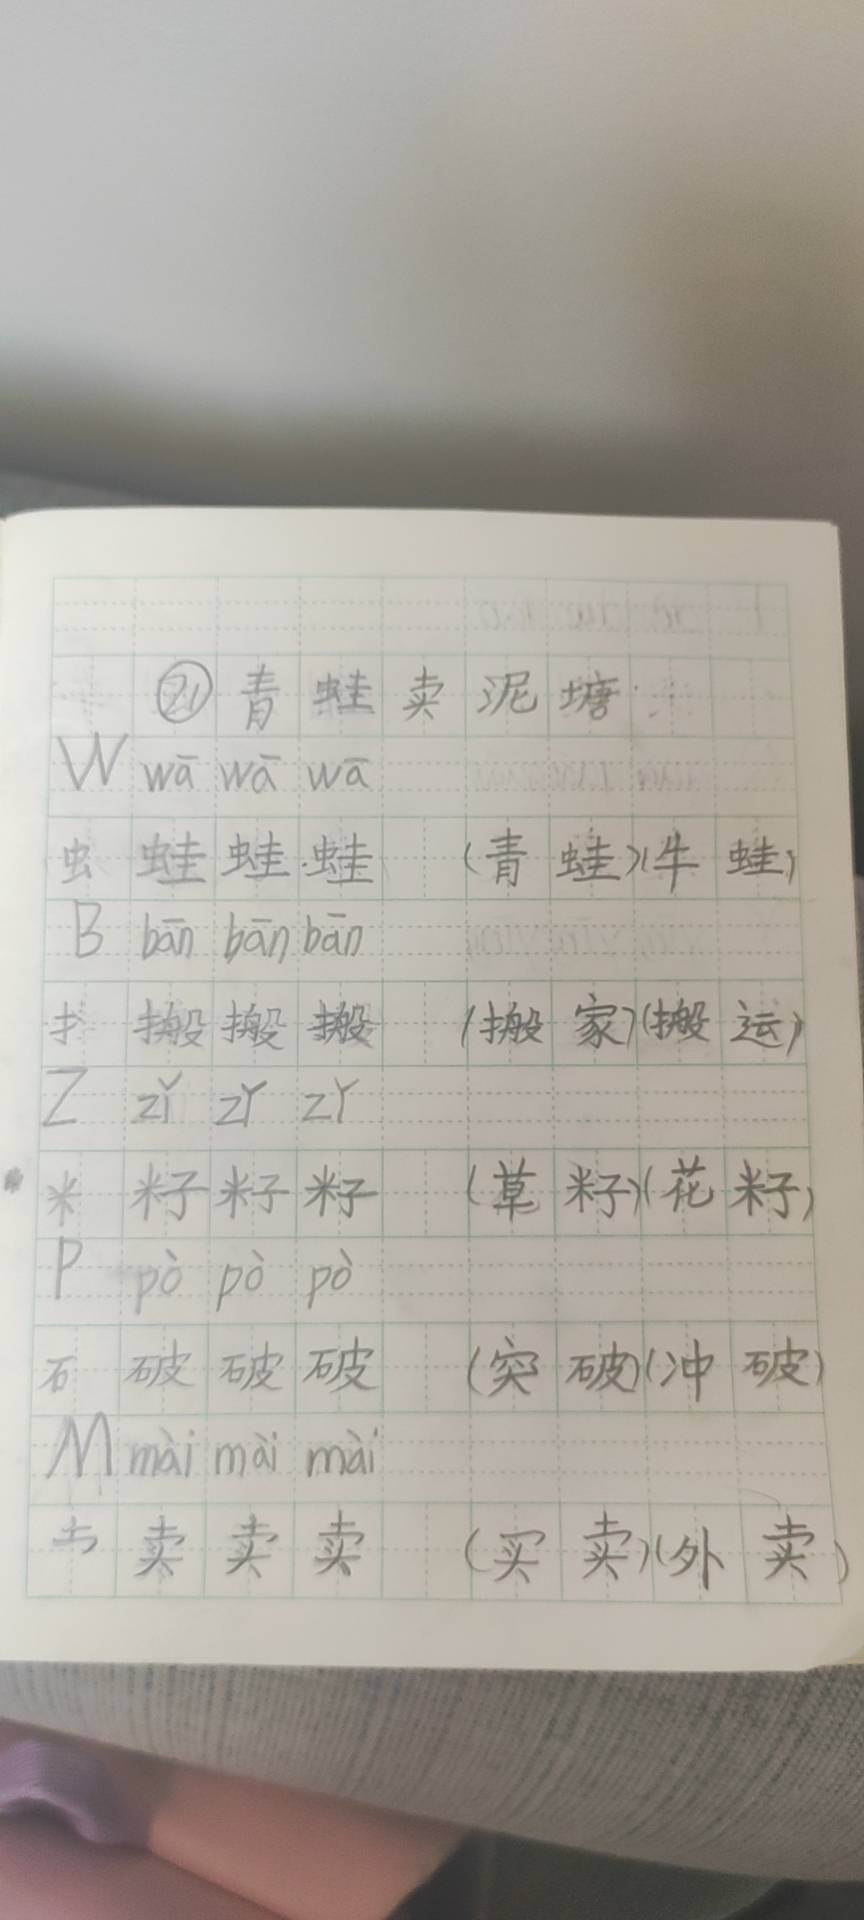 ㉑青蛙卖泥塘
W wā wā wā
虫 蛙 蛙 蛙 (青蛙)(牛蛙)
B bān bān bān
扌 搬 搬 搬 (搬家)(搬运)
Z zǐ zǐ zǐ
米 籽 籽 籽 (草籽)(花籽)
P pò pò pò
石 破 破 破 (突破)(冲破)
M mài mài mài
卖 卖 卖 (买卖)(外卖)